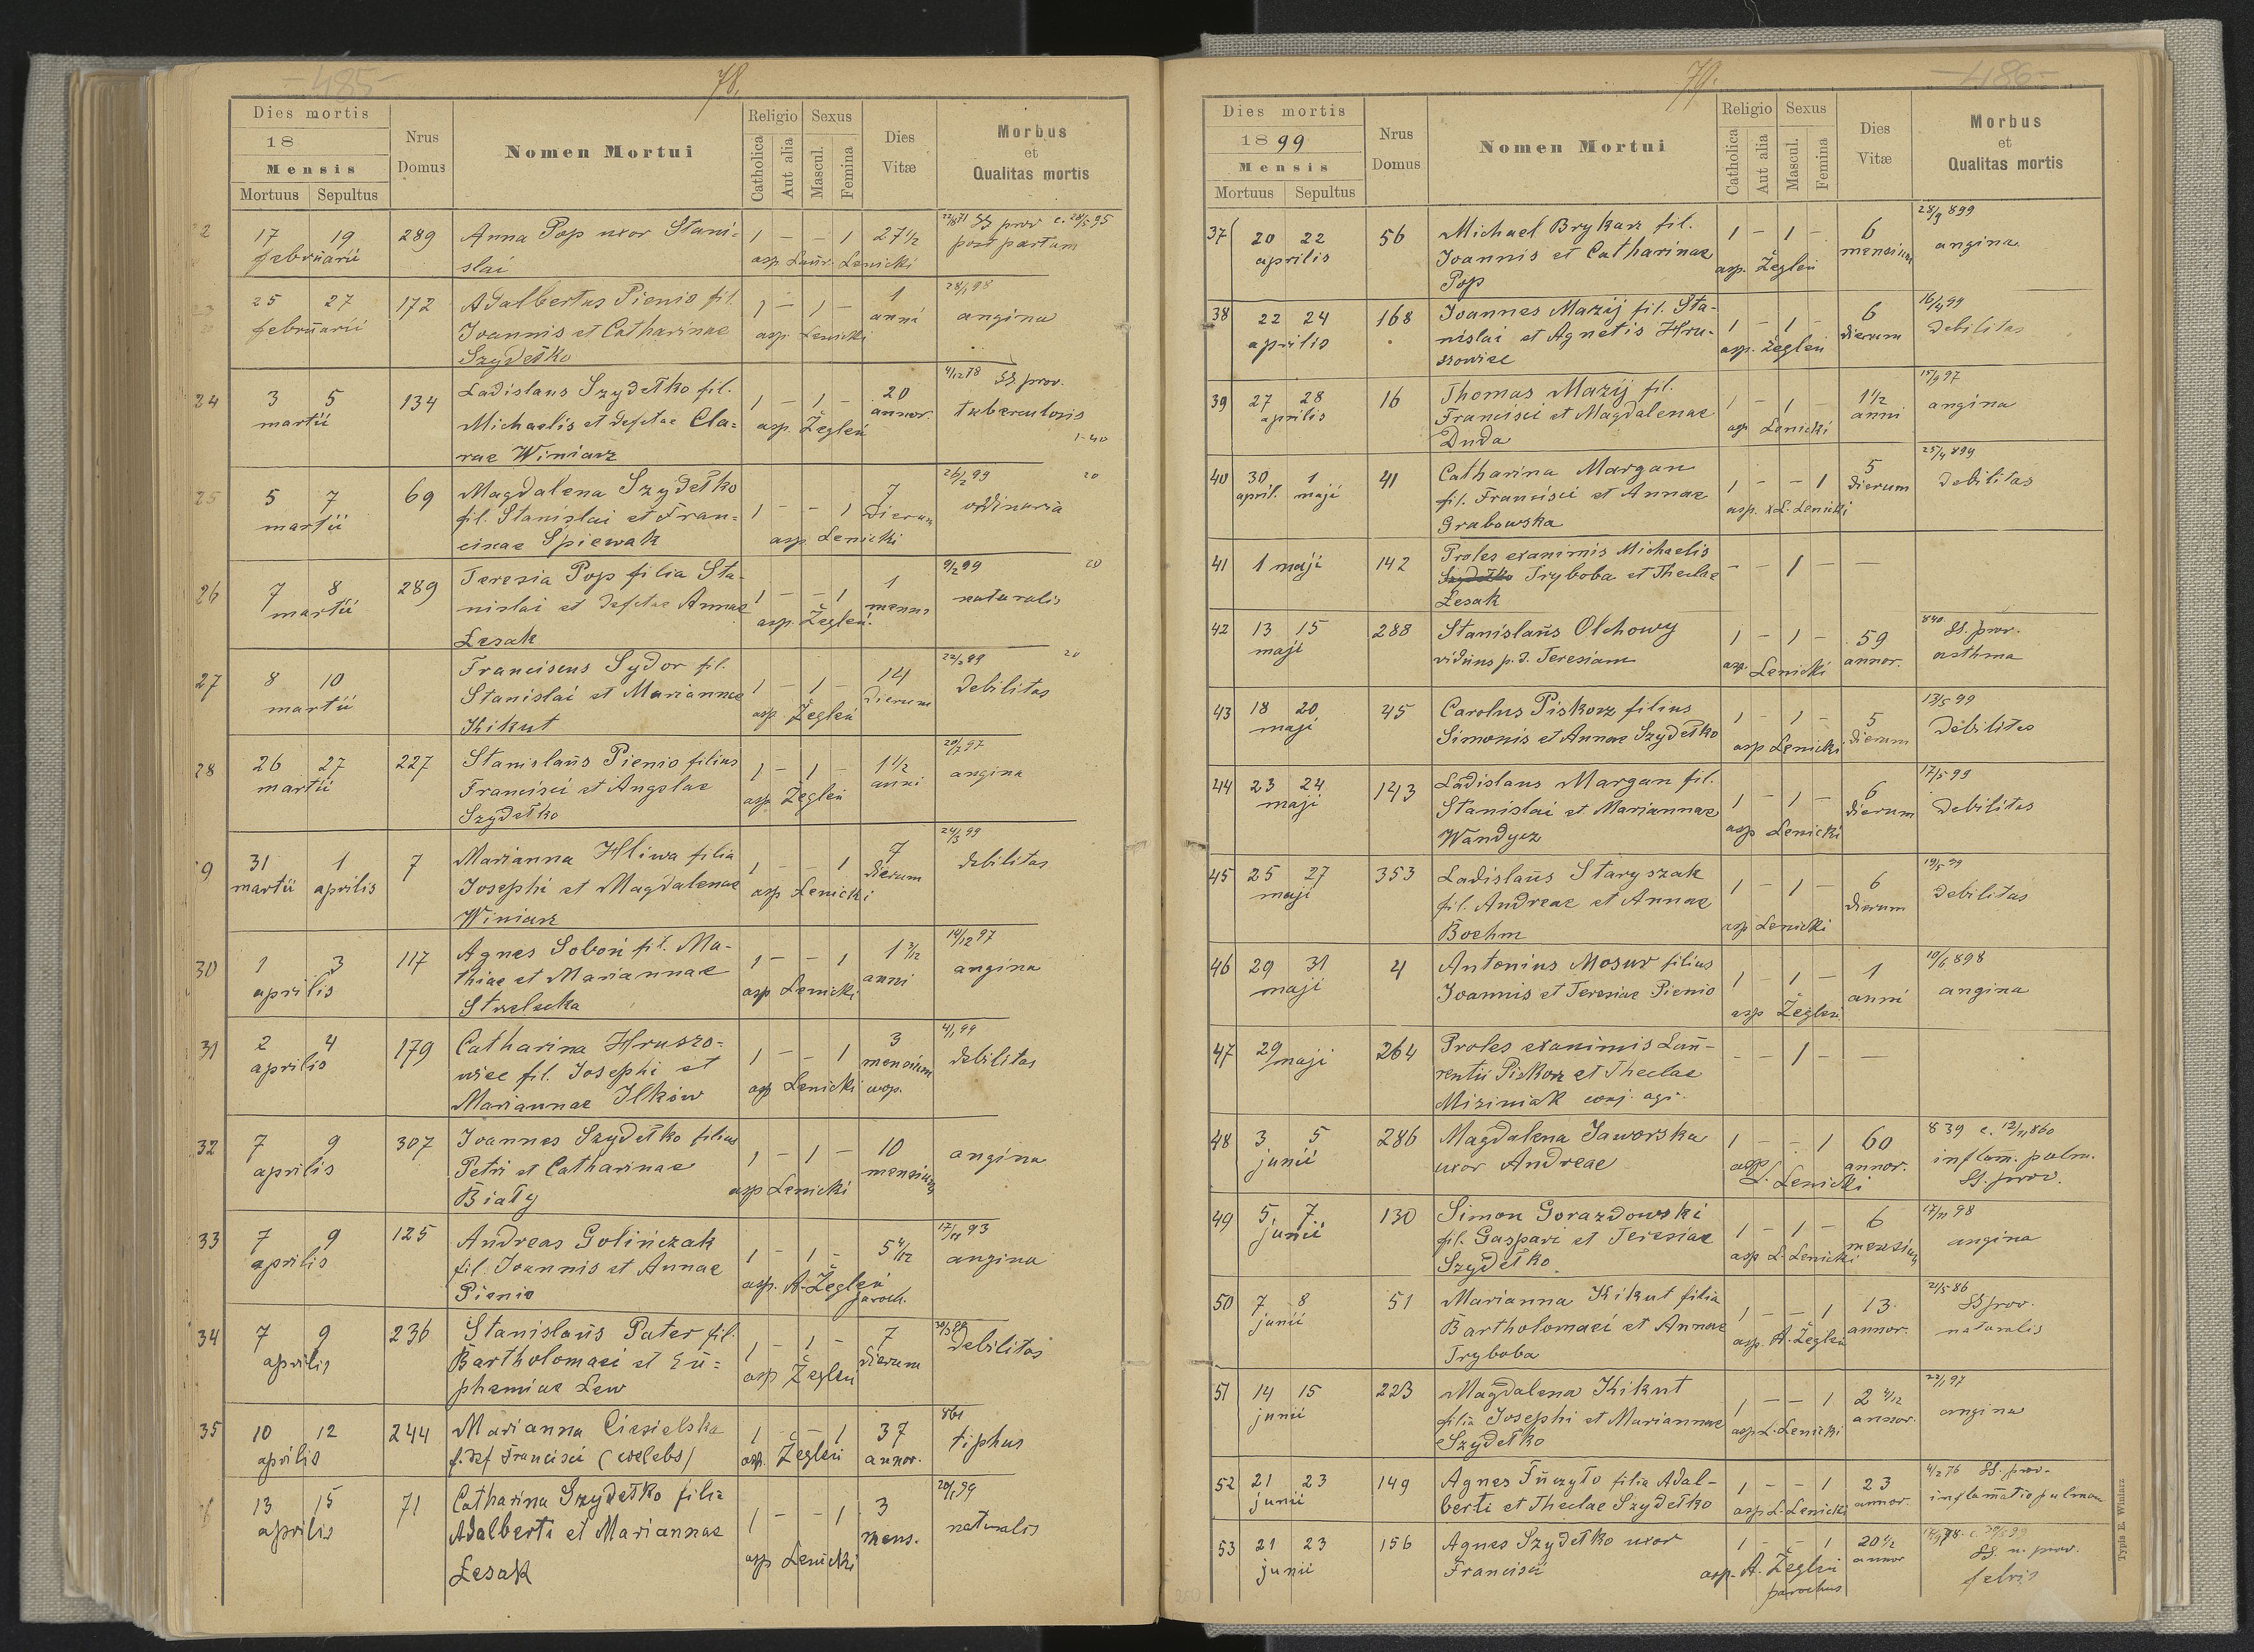 -485-
78.
Dies mortis
18
Mensis
Mortuus Sepultus
Nrus
Domus
Nomen Mortui
Religio
Catholica
Aut alia
Sexus
Mascul.
Femina
Dies
Vitæ
Morbus
et
Qualitas mortis
22/8 71 SS prov c. 28/5 95
17 19 289 Anna Pop uxor Stani= 1 - - 1 27 1/2 post partum
februarii slai asp. Laur. Lenicki
28/1 98
25 27 172 Adalbertus Pienio fil. 1 - 1 - 1 angina
februarii Joannis et Catharinae asp. Lenicki anni
Szydełko
4/12 78 SS. prov.
24 3 5 134 Ladislaus Szydełko fil. 1 - 1 - 20 tuberculosis
martii Michaelis et defctae Cla= asp. Żegleń annor. 1-40
rae Winiarz
26/2 99 20
25 5 7 69 Magdalena Szydełko 1 - - 1 7 ordinaria
martii fil. Stanislai et Fran= dierum
ciscae Śpiewak asp. Lenicki
9/2 99 20
26 7 8 289 Teresia Pop filia Sta- 1 - - 1 1 naturalis
martii nislai et defctae Annae asp. Żegleń. mensis
Łesak
22/2 99 20
27 8 10 Franciscus Sydor fil. 1 - 1 - 14 debilitas
martii Stanislai et Mariannae asp. Żegleń dierum
Kikut
20/7 97
28 26 27 227 Stanislaus Pienio filius 1 - 1 - 1 1/2 angina
martii Francisci et Angelae asp. Żegleń anni
Szydełko
24/3 99
9 31 1 7 Marianna Hliwa filia 1 - - 1 7 debilitas
martii aprilis Josephi et Magdalenae asp Lenicki dierum
Winiarz
14/12 97
30 1 3 117 Agnes Soboń fil. Ma- 1 - - 1 1 3/12 angina
aprilis thiae et Mariannae asp Lenicki anni
Strzelecka
4/1 99
31 2 4 179 Catharina Hruszo= 1 - - 1 3 debilitas
aprilis wiec fil. Josephi et asp Lenicki mensium
Mariannae Ilków
32 7 9 307 Joannes Szydełko filius 1 - 1 - 10 angina
aprilis Petri et Catharinae asp Lenicki mensium
Biały
17/11 93
33 7 9 125 Andreas Golińczak 1 - 1 - 5 4/12 angina
aprilis fil. Joannis et Annae asp. A. Żegleń
Pienio paroch.
30/3 99
34 7 9 236 Stanislaus Pater fil. 1 - 1 - 7 debilitas
aprilis Bartholomaei et Eu= asp Żegleń dierum
phemiae Lew
861
35 10 12 244 Marianna Ciesielska 1 - - 1 37 tiphus
aprilis f. def Francisci (coelebs) asp. Żegleń annor.
20/1 99
13 15 71 Catharina Szydełko filia 1 - - 1 3 naturalis
aprilis Adalberti et Mariannae asp Lenicki mens.
Łesak
-486-
79.
Dies mortis
1899
Mensis
Mortuus Sepultus
Nrus
Domus
Nomen Mortui
Religio
Catholica
Aut alia
Sexus
Mascul.
Femina
Dies
Vitæ
Morbus
et
Qualitas mortis
28/9 899
37 20 22 56 Michael Brykarz fil. 1 - 1 - 6 angina
aprilis Joannis et Catharinae asp. Żegleń mensium
Pop
16/4 99
38 22 24 168 Joannes Mazij fil. Sta- 1 - 1 - 6 debilitas
aprilis nislai et Agnetis Hru- asp. Żegleń dierum
szowiec
15/9 97
39 27 28 16 Thomas Mazij fil. 1 - 1 - 1 1/2 angina
aprilis Francisci et Magdalenae asp Lenicki anni
Duda
25/4 899
40 30 1 41 Catharina Margan 1 - - 1 5 debilitas
april. maji fil. Francisci et Annae asp. xL. Lenicki dierum
Grabowska
41 1 maji 142 Proles exanimis Michaelis - - 1 - -
Szydełko Tryboba et Theclae
Łesak
840
42 13 15 288 Stanislaus Olchowy 1 - 1 - 59 SS. prov.
maji viduus p. d. Teresiam asp. Lenicki annor. asthma
13/5 99
43 18 20 45 Carolus Piskorz filius 1 - 1 - 5 debilitas
maji Simonis et Annae Szydełko asp Lenicki dierum
17/5 99
44 23 24 143 Ladislaus Margan fil. 1 - 1 - 6 debilitas
maji Stanislai et Mariannae asp Lenicki dierum
Wandycz
19/5 99
45 25 27 353 Ladislaus Staryszak 1 - 1 - 6 debilitas
maji fil. Andreae et Annae asp Lenicki dierum
Boehm
10/6 898
46 29 31 4 Antonius Mosur filius 1 - 1 - 1 angina
maji Joannis et Teresiae Pienio asp Żegleń anni
47 29 maji 264 Proles exanimis Lau- - - 1 - -
rentii Piskorz et Theclae
Misiniak conj. agr.
839 c. 12/11 860
48 3 5 286 Magdalena Jaworska 1 - - 1 60 inflam. pulm.
junii uxor Andreae asp L. Lenicki annor. SS. prov.
17/11 98
49 5 7 130 Simon Gorazdowski 1 - 1 - 6 angina
junii fil. Gaspari et Teresiae asp L. Lenicki mensium
Szydełko
21/5 86
50 7 8 51 Marianna Kikut filia 1 - - 1 13 SS prov.
junii Bartholomaei et Annae asp. A. Żegleń annor. naturalis
Tryboba
22/1 97
51 14 15 223 Magdalena Kikut 1 - - 1 2 4/12 angina
junii filia Josephi et Mariannae asp L. Lenicki annor.
Szydełko
4/2 76 SS. prov.
52 21 23 149 Agnes Tuczyło filia Adal- 1 - - 1 23 inflamatio pulmon
junii berti et Theclae Szydełko asp L. Lenicki annor.
53 21 23 156 Agnes Szydełko uxor 1 - - 1 20 1/2 SS. n. prov.
junii Francisci asp. A. Żegleń annor febris
parochus
Typis E. Winiarz